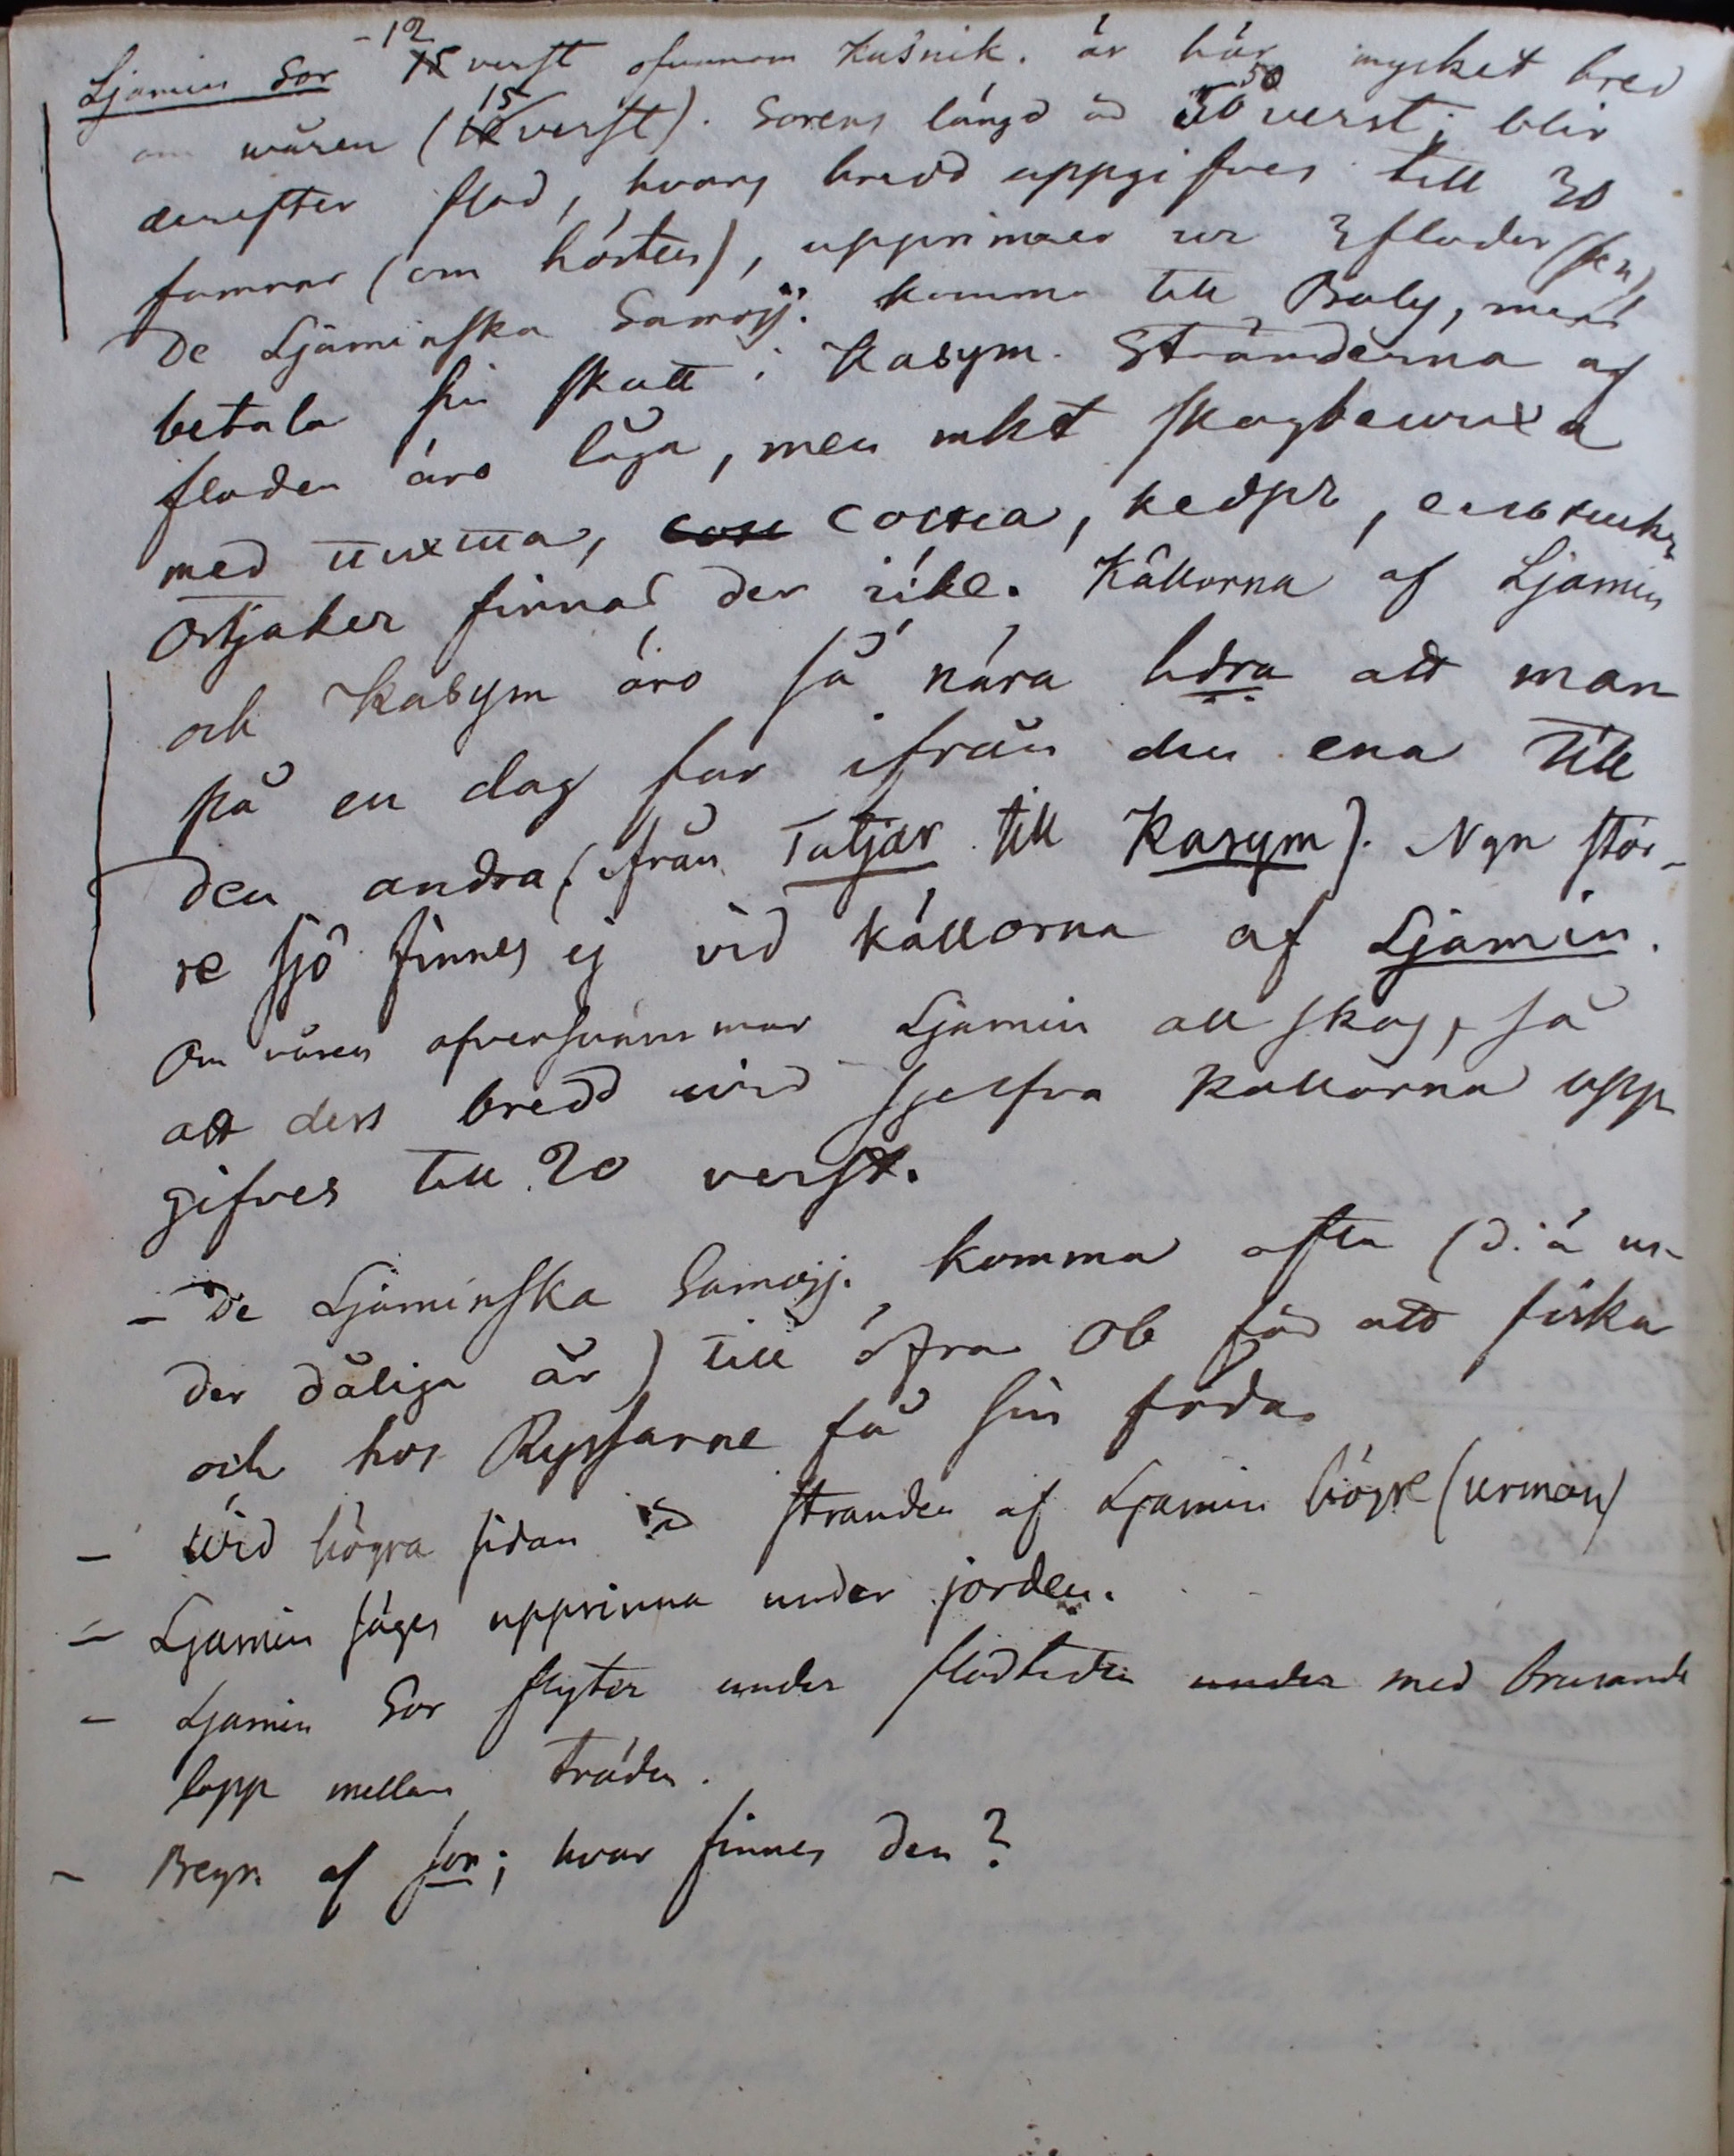 Ljamin Sor -12 verst ofvanom Kušnik. är här mycket bred
om våren (15 verst). Sorens längd är 50 verst; blir
derefter flod, hvars bredd uppgifves till 30
famnar (om hösten), upprinner ur 3 floder
De Ljaminska Samoj. komma till, men
betala sin skatt i Kasym. Stränderna af
floden äro låga, men mkt skogbeväxta
med пихта, сосна, кедръ,
Ostjaker finnas der icke. Källorna af Ljamin
och Kasym äro så nära hdra att man
på en dag far ifrån den ena till
den andra (från Tatjar till Kasym). Ngn stör-
re sjö finnes ej vid källorna af Ljamin.
Om våren öfversvämmar Ljamin all skog, så
att dess bredd vid sjelfva källorna upp
gifves till 20 verst.
- De Ljaminska Samojj. komma ofta (d. ä un-
der dåliga år) till öfra Ob för att fiska
och hos Ryssarne få sin föda.
- Wid högra sidan är stranden af Ljamin högre (urman)
- Ljamin säges upprinna under jorden.
- Ljamin Sor flyter under flodtiden under med brusande
lopp mellan träden.
- Begr. af sor; hvar finnes den?